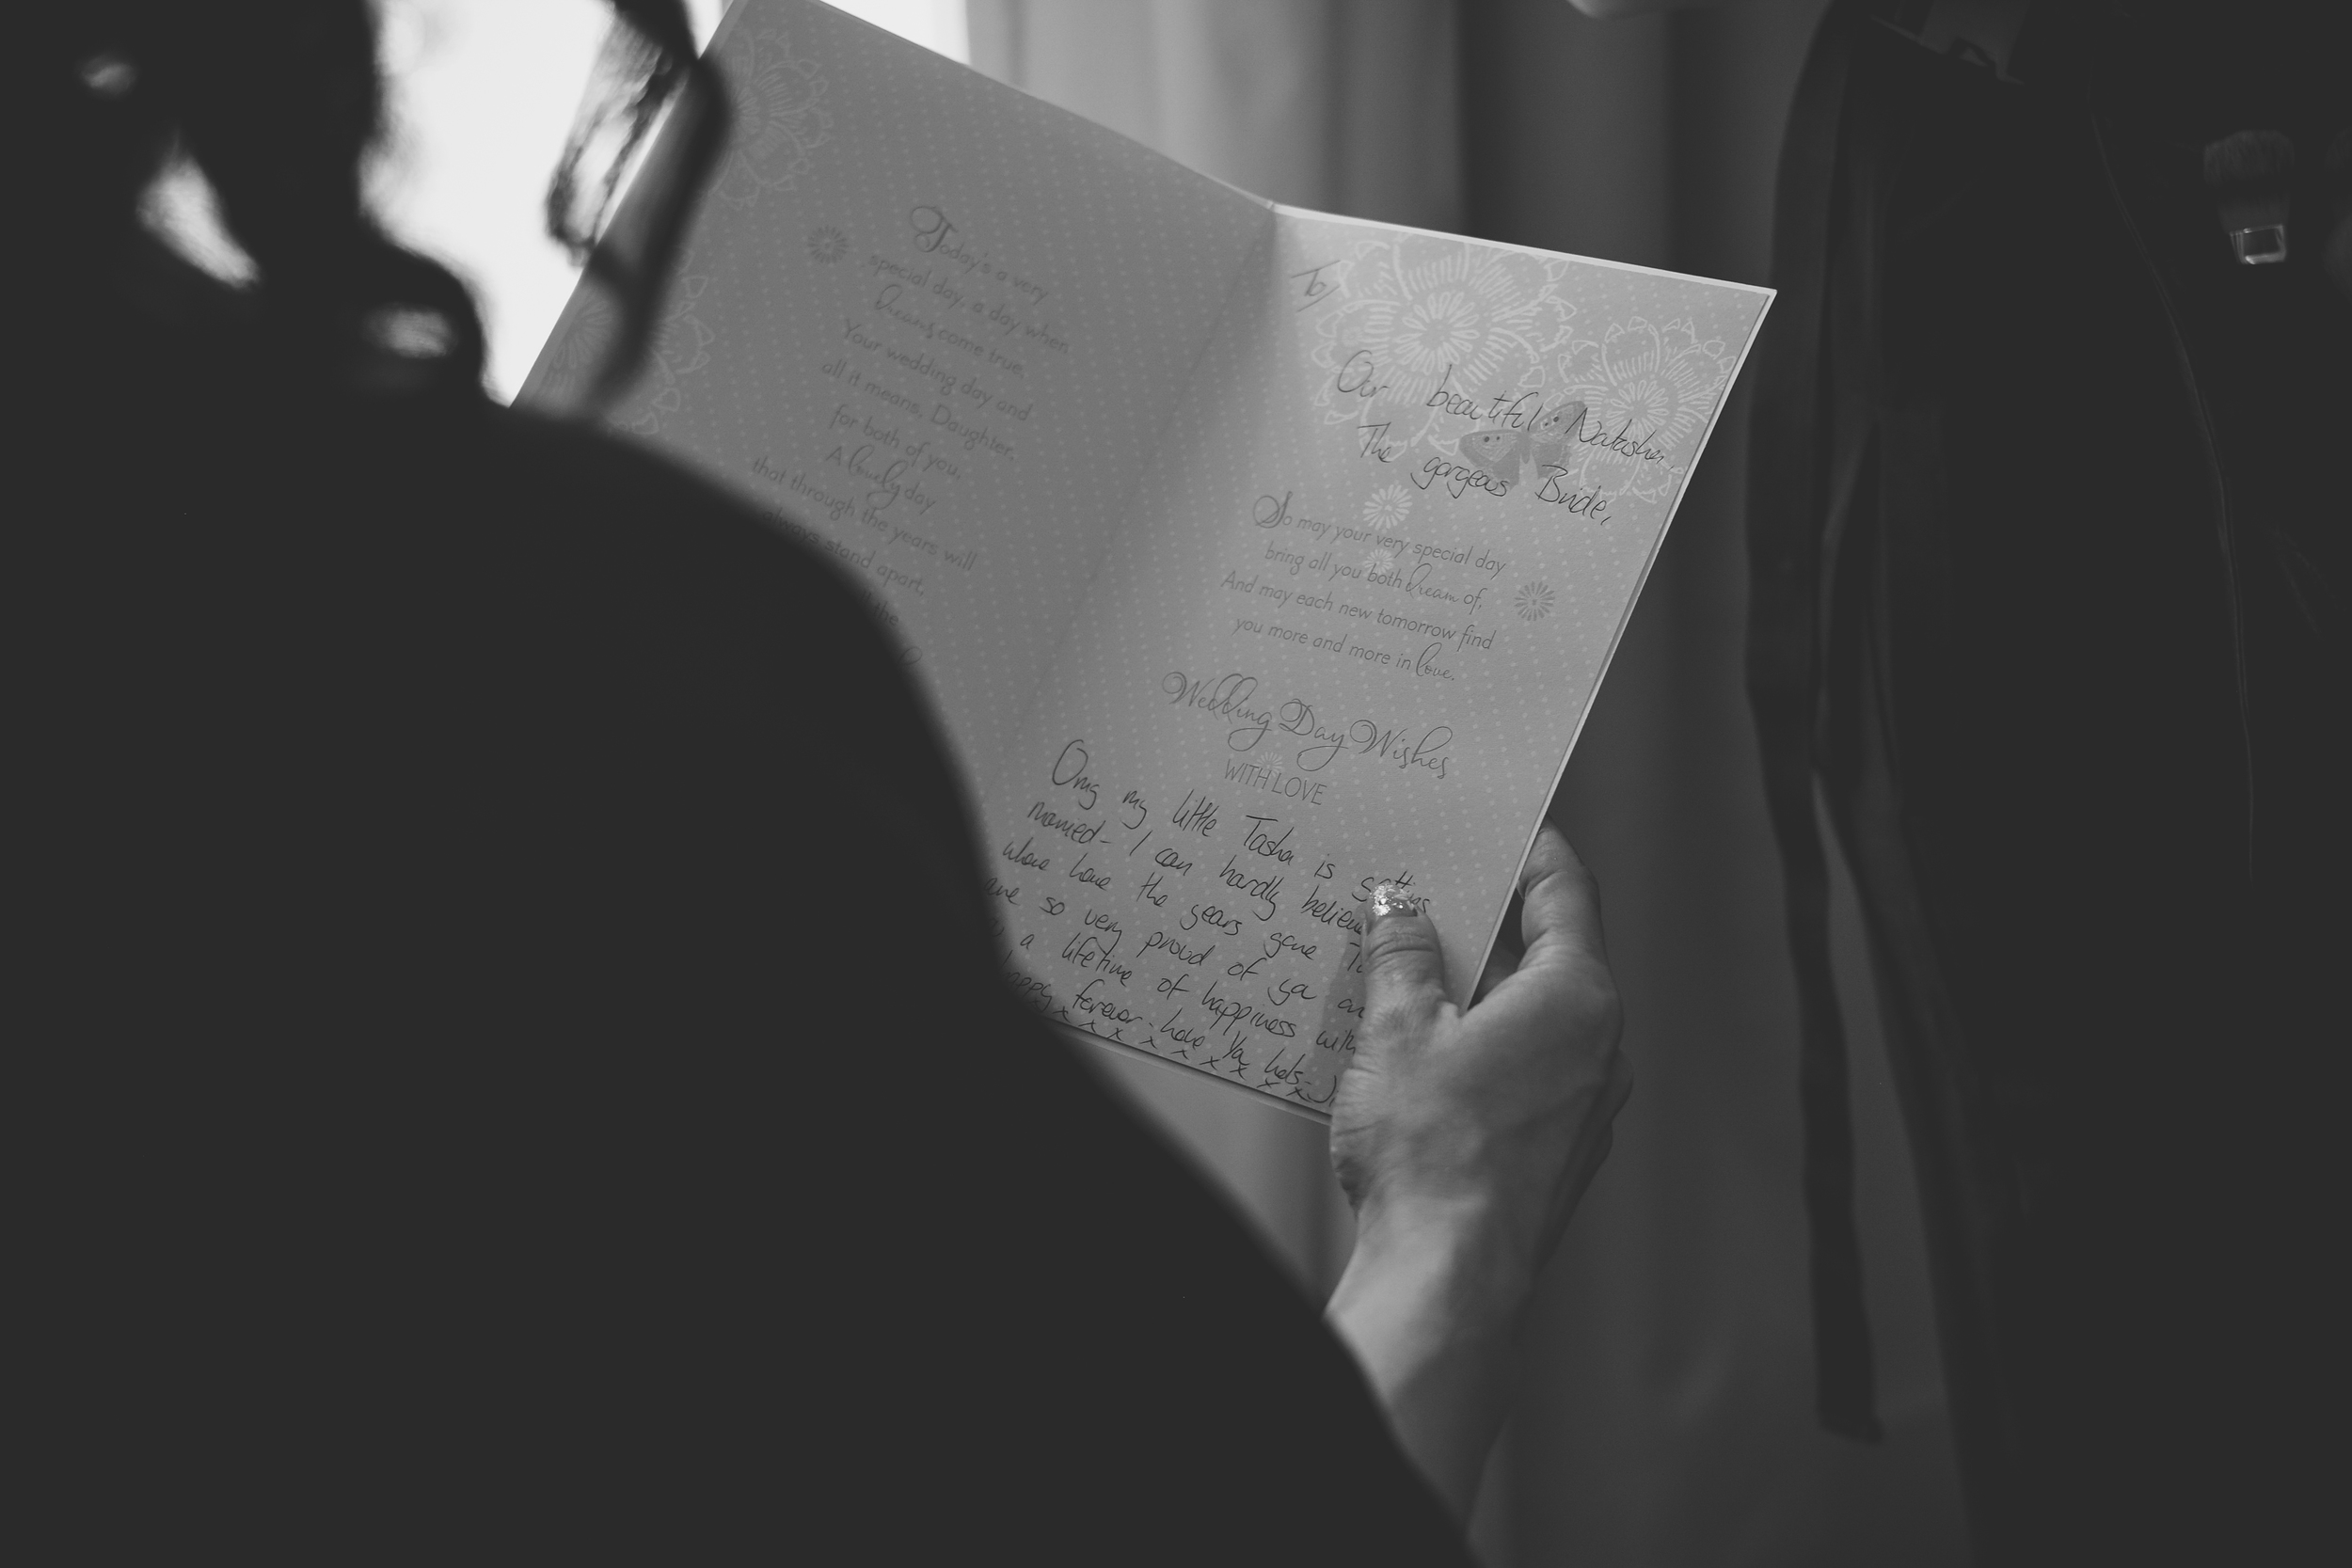 Today's a very
special day, a day when
dreams come true.
Your wedding day and
all it means, Daughter,
for both of you,
A lovely day
that through the years will
always stand apart,
the
To/
Our beautiful Natasha,
The gorgeous Bride,
So may your very special day
bring all you both dream of,
And may each new tomorrow find
you more and more in love.
Wedding Day Wishes
WITH LOVE
Omg my little Tasha is
married - I can hardly
have the years gone
so very proud of ya
a lifetime of happiness with
forever
x x x x x x x x x